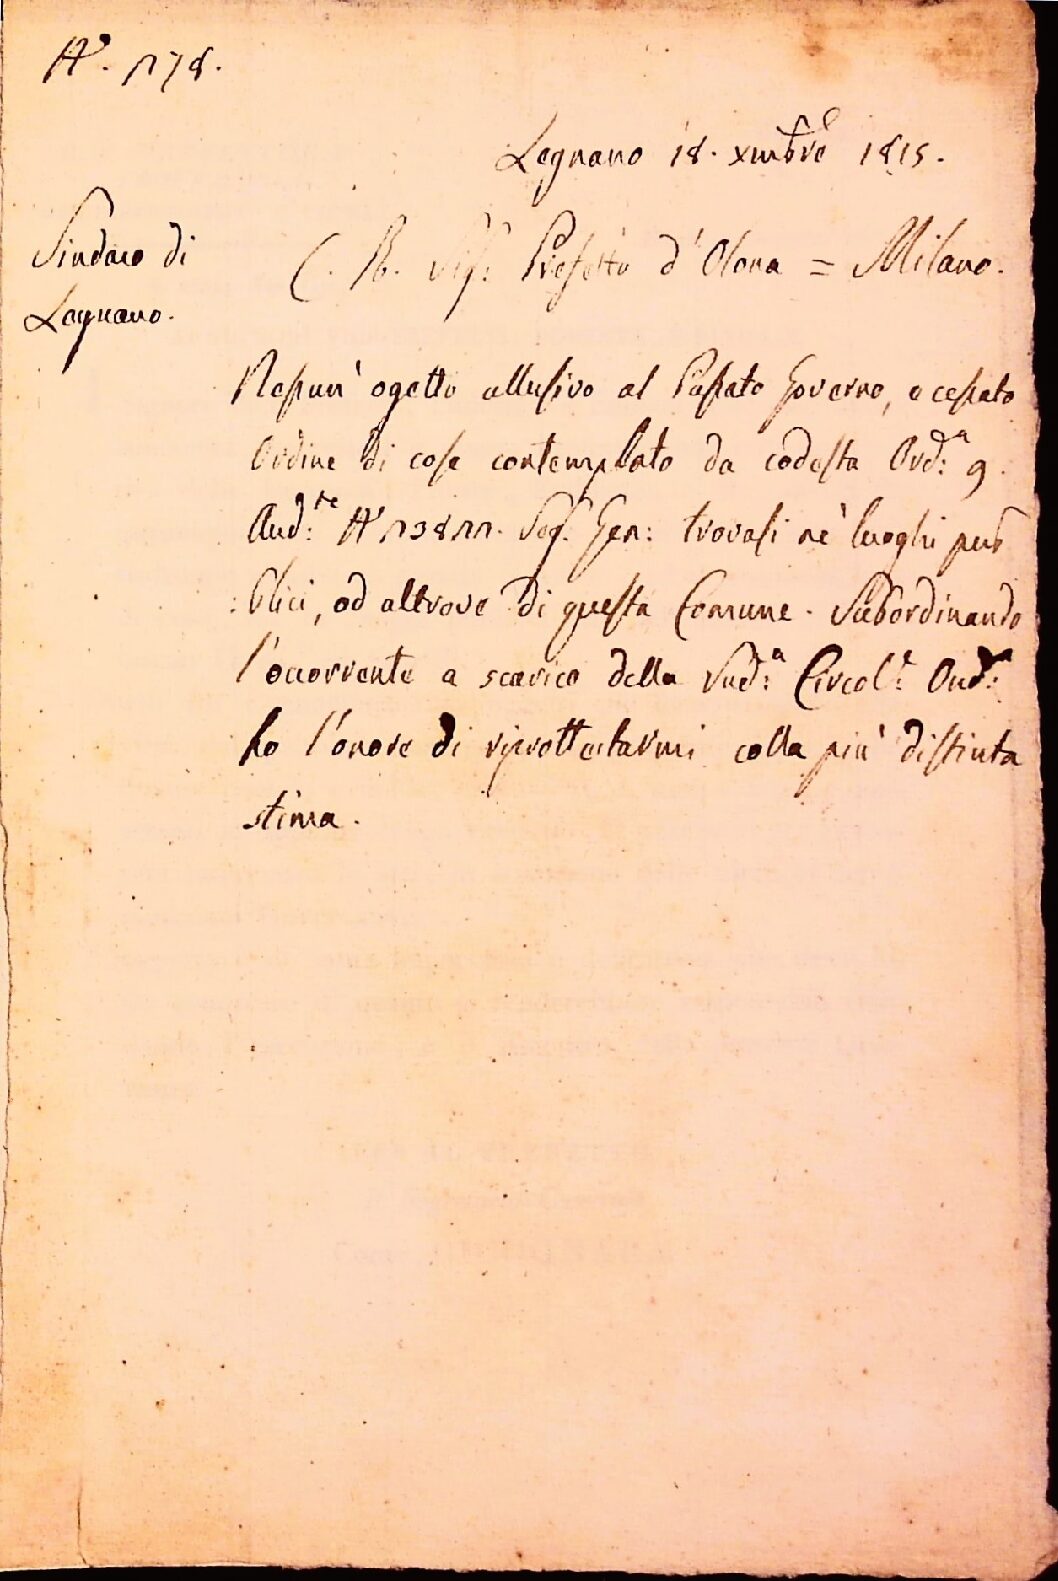 N°. 278.
Legnano 18. xmbre 1815.
Sindaco di
Legnano.
C. R. Sig: Prefetto d'Olona = Milano.
Nessun' ogetto allusivo al Passato Governo, e cessato
Ordine di cose contemplato da codesta Ord:a 9.
And:te N° 23822. Seg. Gen: trovasi nè luoghi pub
:blici, od altrove di questa Comune. Subordinando
l'occorrente a scarico della Sud:a Circol:e Ord:a
ho l'onore di riprottestarmi colla più distinta
stima.